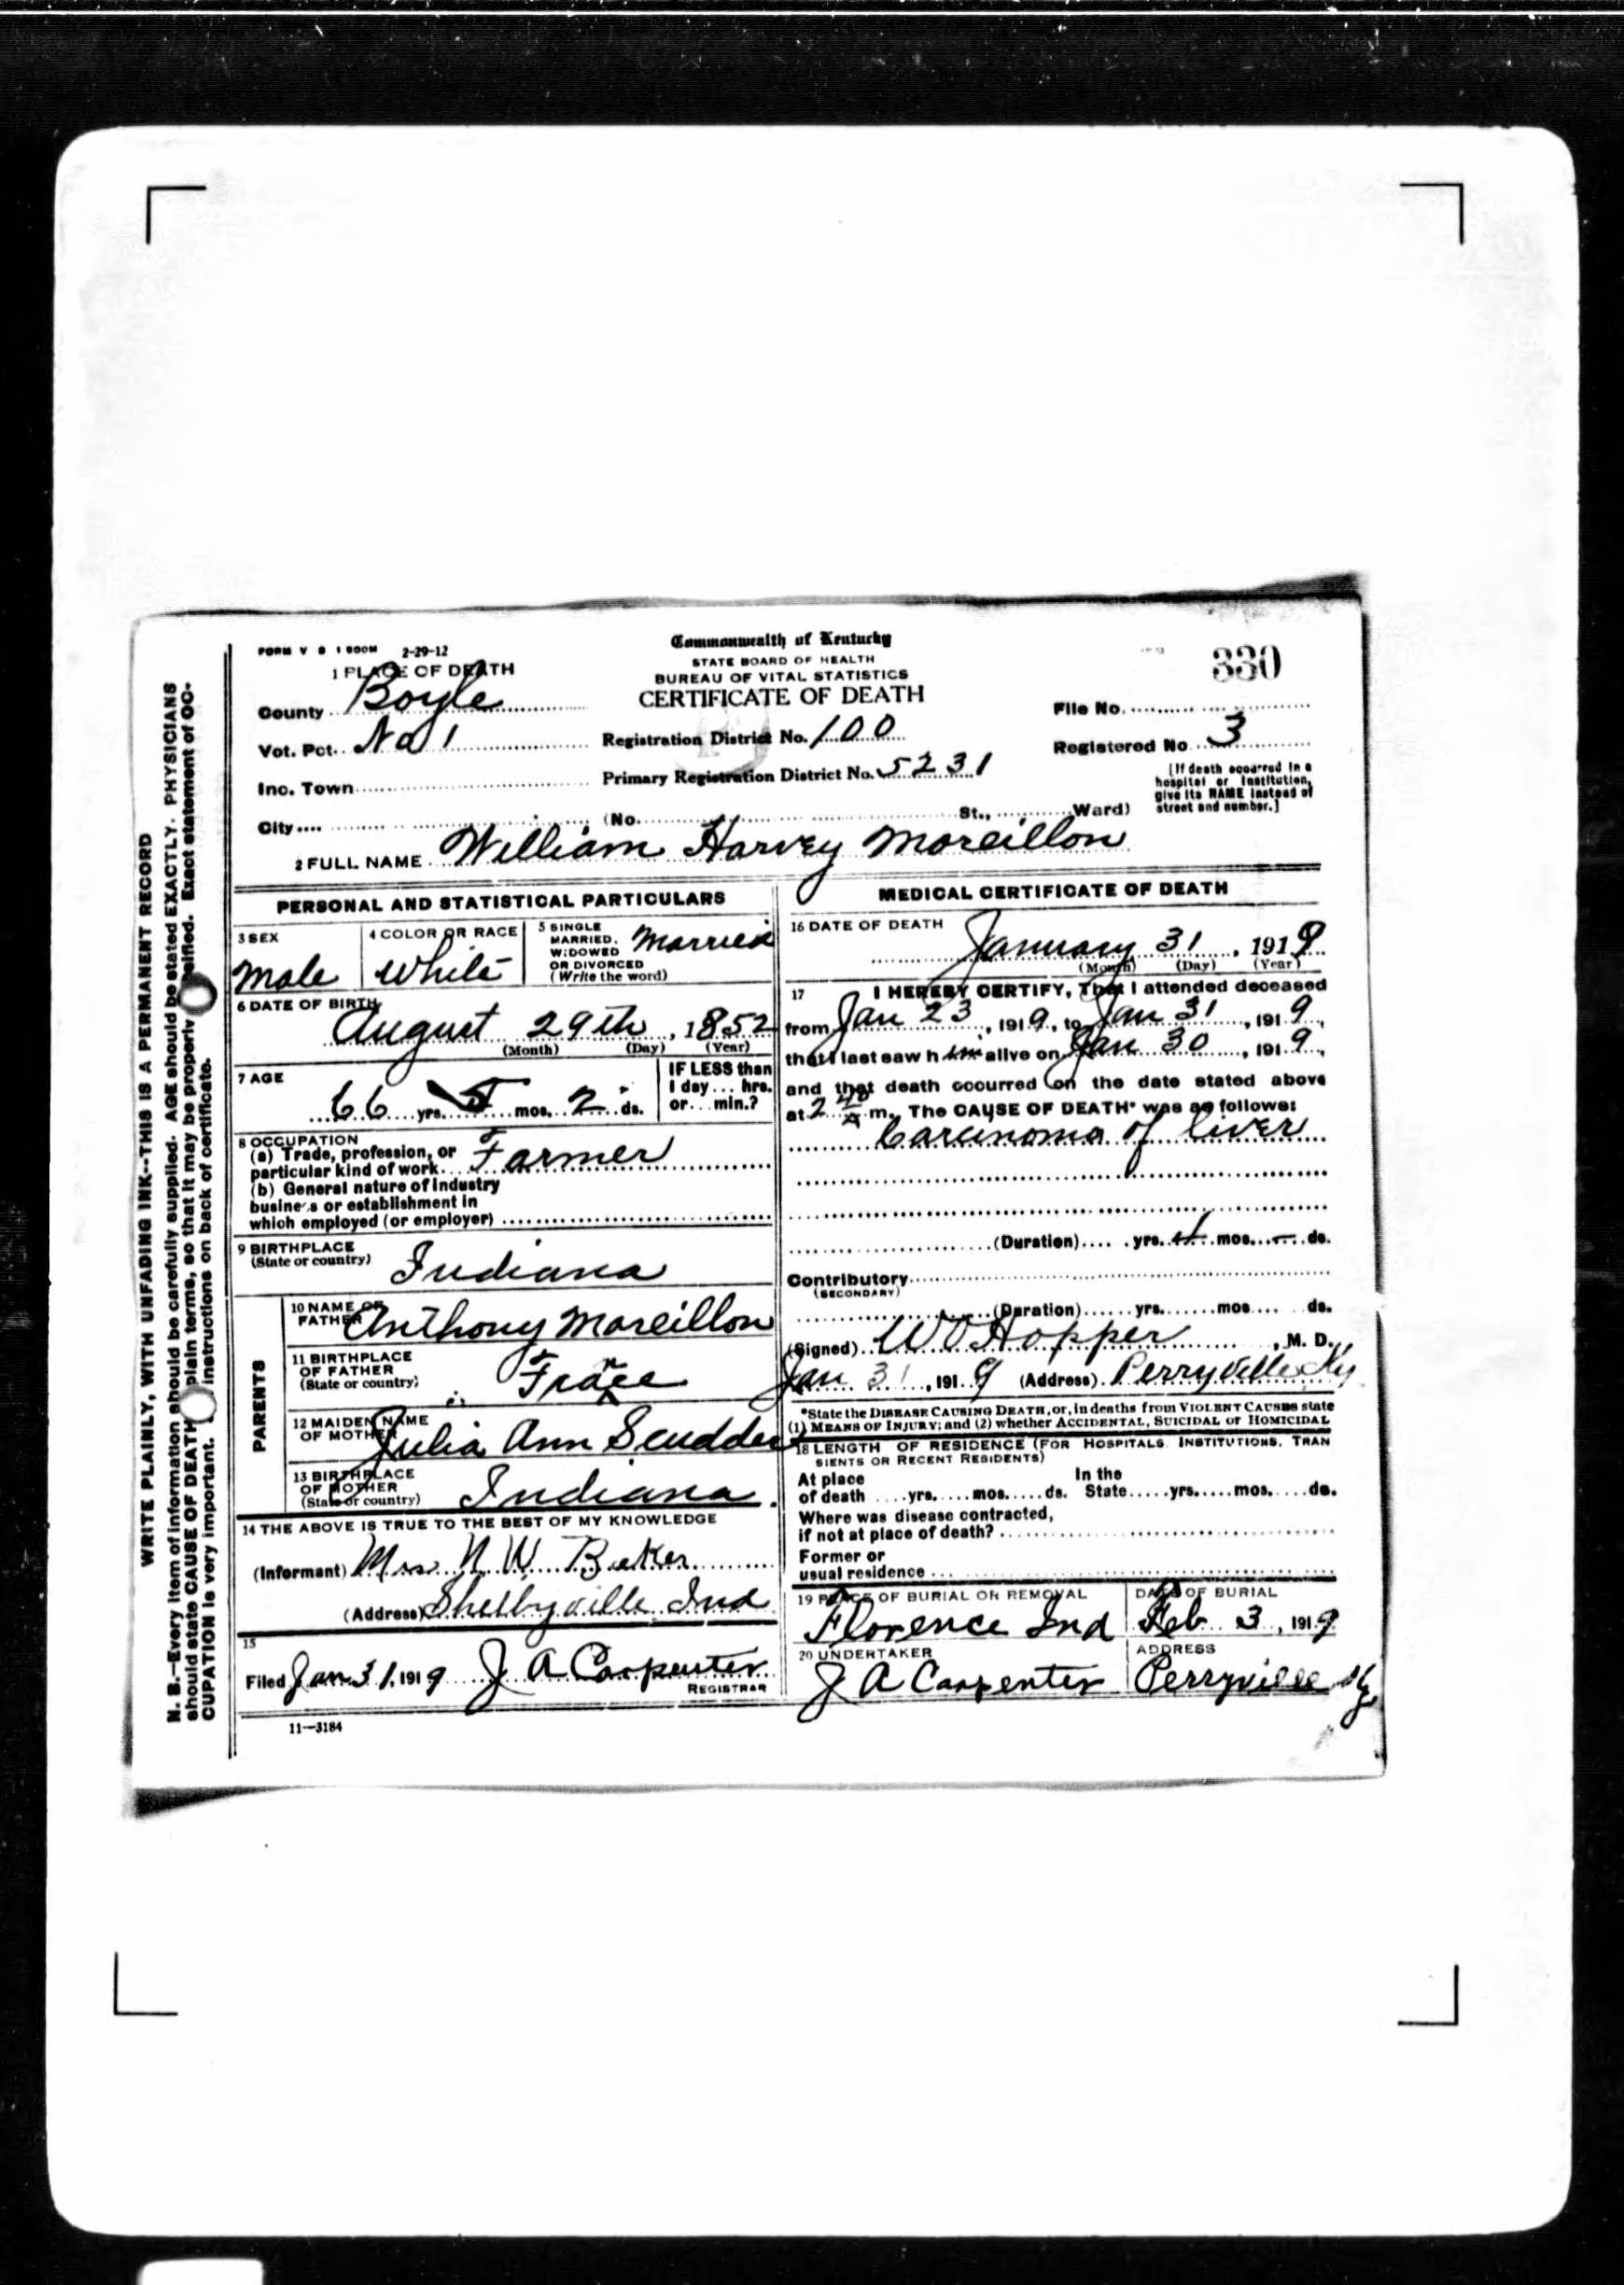 FORM V S 1 500M 2-29-12
Commonwealth of Kentucky
STATE BOARD OF HEALTH
BUREAU OF VITAL STATISTICS
CERTIFICATE OF DEATH
330
1 PLACE OF DEATH
County Boyle
Vot. Pct. No 1
Inc. Town
City
Registration District No. 100
Primary Registration District No. 5231
(No. St., Ward)
File No.
Registered No 3
[If death occurred in a
hospital or institution,
give its NAME instead of
street and number.]
2 FULL NAME William Harvey Moreillon
PERSONAL AND STATISTICAL PARTICULARS
3 SEX
Male
4 COLOR OR RACE
White
5 SINGLE
MARRIED,
WIDOWED
OR DIVORCED
(Write the word)
Married
6 DATE OF BIRTH
August 29th, 1852
(Month) (Day) (Year)
7 AGE
66 yrs. 5 mos. 2 ds.
IF LESS than
1 day ... hrs.
or ... min.?
8 OCCUPATION
(a) Trade, profession, or
particular kind of work Farmer
(b) General nature of Industry
business or establishment in
which employed (or employer)
9 BIRTHPLACE
(State or country)
Indiana
PARENTS
10 NAME OF
FATHER
Anthony Moreillon
11 BIRTHPLACE
OF FATHER
(State or country)
Frace
n
12 MAIDEN NAME
OF MOTHER
Julia Ann Scudder
13 BIRTHPLACE
OF MOTHER
(State or country)
Indiana.
14 THE ABOVE IS TRUE TO THE BEST OF MY KNOWLEDGE
(Informant) Mrs N. W.
(Address) Shelbyville Ind
15
Filed Jan 31, 1919 J A Carpenter
REGISTRAR
11—3184
MEDICAL CERTIFICATE OF DEATH
16 DATE OF DEATH
January 31, 1919
(Month) (Day) (Year)
17 I HEREBY CERTIFY, That I attended deceased
from Jan 23, 1919, to Jan 31, 1919,
that I last saw him alive on Jan 30, 1919,
and that death occurred on the date stated above
at 2 40 A m. The CAUSE OF DEATH* was as follows:
Carcinoma of liver
(Duration) yrs. 4 mos. — ds.
Contributory
(SECONDARY)
(Duration) yrs. mos. ds.
(Signed) W O Hopper, M. D.
Jan 31, 1919 (Address) Perryville Ky
*State the DISEASE CAUSING DEATH, or, in deaths from VIOLENT CAUSES state
(1) MEANS OF INJURY; and (2) whether ACCIDENTAL, SUICIDAL or HOMICIDAL
18 LENGTH OF RESIDENCE (FOR HOSPITALS. INSTITUTIONS. TRAN
SIENTS OR RECENT RESIDENTS)
At place
of death yrs. mos. ds.
In the
State yrs. mos. ds.
Where was disease contracted,
if not at place of death?
Former or
usual residence
19 PLACE OF BURIAL OR REMOVAL
Florence Ind
DATE OF BURIAL
Feb 3, 1919
20 UNDERTAKER
J A Carpenter
ADDRESS
Perryville Ky
WRITE PLAINLY, WITH UNFADING INK--THIS IS A PERMANENT RECORD
N. B.—Every item of information should be carefully supplied. AGE should be stated EXACTLY. PHYSICIANS
should state CAUSE OF DEATH plain terms, so that it may be properly classified. Exact statement of OC-
CUPATION is very important. instructions on back of certificate.